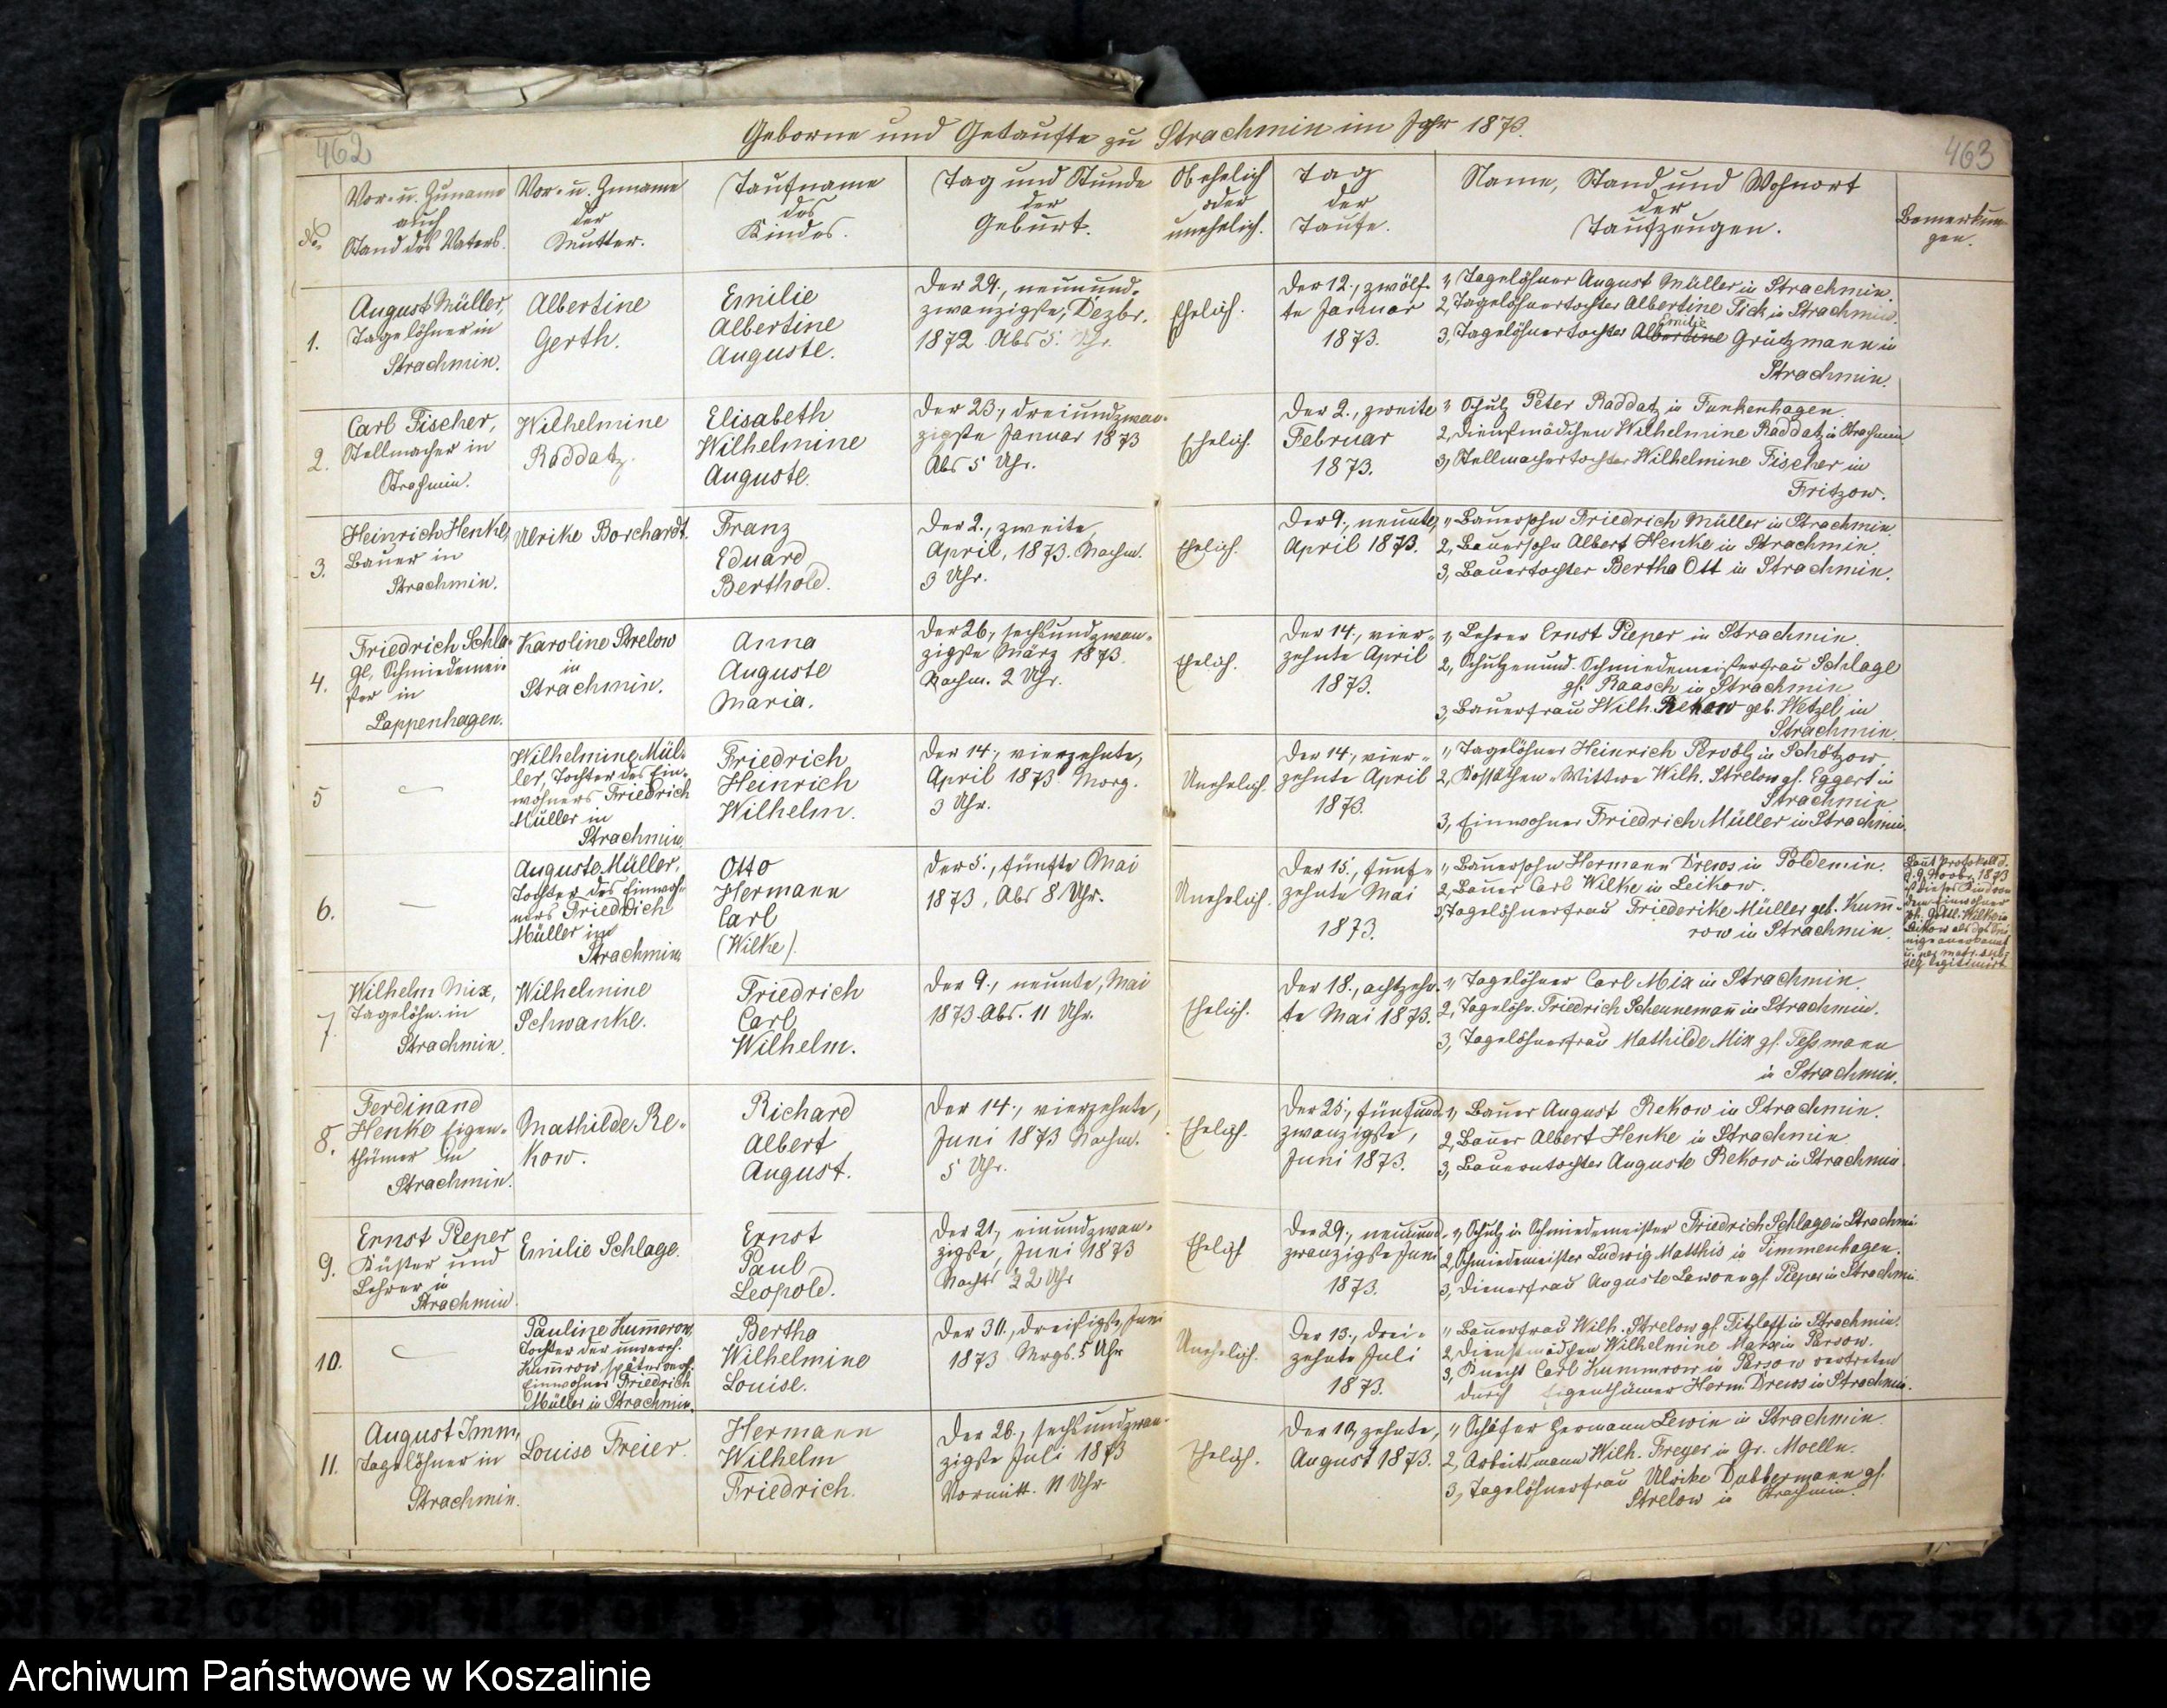 462
Geborne und Getaufte zu Strachmin im Jahr 1873.
463
No.
Vor- u. Zuname
auch
Stand des Vaters.
Vor- u. Zuname
der
Mutter.
Taufname
des
Kindes.
Tag und Stunde
der
Geburt.
Ob ehelich
oder
unehelich.
Tag
der
Taufe.
Name, Stand und Wohnort
der
Taufzeugen.
Bemerkun-
gen.
1.
August Müller,
Tagelöhner in
Strachmin.
Albertine
Gerth.
Emilie
Albertine
Auguste.
Der 29., neunund-
zwanzigste, Dezbr.
1872 Abs 5. Uhr.
Ehelich.
Der 12., zwölf-
te Januar
1873.
1, Tagelöhner August Müller in Strachmin.
2, Tagelöhnertochter Albertine Fick in Strachmin.
Emilie
3, Tagelöhnertochter Albertine Grützmann in
Strachmin.
2.
Carl Fischer,
Stellmacher in
Strachmin.
Wilhelmine
Raddatz.
Elisabeth
Wilhelmine
Auguste.
Der 23., dreiundzwan-
zigste Januar 1873
Abs 5 Uhr.
Ehelich.
Der 2., zweite
Februar
1873.
1, Schulz Peter Raddatz in Funkenhagen.
2, Dienstmädchen Wilhelmine Raddatz in Strachmin
3, Stellmachertochter Wilhelmine Fischer in
Fritzow.
3.
Heinrich Henke,
Bauer in
Strachmin.
Ulrike Borchardt.
Franz
Eduard
Berthold.
Der 2., zweite,
April, 1873. Nachm.
3 Uhr.
Ehelich.
Der 9., neunte,
April 1873.
1, Bauersohn Friedrich Müller in Strachmin.
2, Bauersohn Albert Henke in Strachmin.
3, Bauertochter Bertha Ott in Strachmin.
4.
Friedrich Schla-
ge, Schmiedemei-
ster in
Lappenhagen.
Karoline Strelow
in
Strachmin.
Anna
Auguste
Maria.
Der 26., sechsundzwan-
zigste März 1873.
Nachm. 2 Uhr.
Ehelich.
Der 14., vier-
zehnte April
1873.
1, Lehrer Ernst Pieper in Strachmin.
2, Schulzen und Schmiedemeisterfrau Schlage
gb. Raasch in Strachmin.
3, Bauerfrau Wilh. Rekow geb. Wetzel in
Strachmin.
5
Wilhelmine Mül-
ler, Tochter des Ein-
wohners Friedrich
Müller in
Strachmin.
Friedrich
Heinrich
Wilhelm.
Der 14., vierzehnte,
April 1873 Morg.
3 Uhr.
Unehelich.
Der 14., vier-
zehnte April
1873.
1, Tagelöhner Heinrich in Schötzow
2, Kossäthen-Wittwe Wilh. Strelow gb. Eggert in
Strachmin.
3, Einwohner Friedrich Müller in Strachmin.
6.
Auguste Müller,
Tochter des Einwoh-
ners Friedrich
Müller in
Strachmin
Otto
Hermann
Carl
(Wilke).
Der 5., fünfte Mai
1873, Abs 8 Uhr.
Unehelich.
Der 15., fünf-
zehnte Mai
1873.
1, Bauersohn Hermann Drews in Poldemin.
2, Bauer Carl Wilke in Leikow.
3, Tagelöhnerfrau Friederike Müller geb. Kumm-
row in Strachmin.
Laut Protokoll d.
d. 9. Novbr. 1873
ist dieses Kind von
dem Einwohner
Wilke in
Leikow als das sei-
nige anerkannt
legitimirt
7.
Wilhelm Mix,
Tagelöhn. in
Strachmin.
Wilhelmine
Schwanke.
Friedrich
Carl
Wilhelm.
Der 9., neunte, Mai
1873 Abs. 11 Uhr.
Ehelich.
Der 18., achtzehn-
te Mai 1873.
1, Tagelöhner Carl Mix in Strachmin.
2, Tagelöhn. Friedrich Scheunemann in Strachmin.
3, Tagelöhnerfrau Mathilde Mix gb. Tessmann
in Strachmin.
8.
Ferdinand
Henke Eigen-
thümer in
Strachmin.
Mathilde Re-
kow.
Richard
Albert
August.
Der 14., vierzehnte,
Juni 1873 Nachm.
5 Uhr.
Ehelich.
Der 25., fünfund-
zwanzigste,
Juni 1873.
1, Bauer August Rekow in Strachmin.
2, Bauer Albert Henke in Strachmin.
3, Bauerntochter Auguste Rekow in Strachmin.
9.
Ernst Pieper
Küster und
Lehrer in
Strachmin.
Emilie Schlage.
Ernst
Paul
Leopold.
Der 21., einundzwan-
zigste, Juni 1873
Nachts 2 Uhr
Ehelich
Der 29., neunund-
zwanzigste Juni
1873.
1, Schulz u. Schmiedemeister Friedrich Schlage in Strachmin
2, Schmiedemeister Ludwig Matthis in Timmenhagen.
3, Dienerfrau Auguste Lewone gb. Pieper in Strachmin
10.
Pauline Kummerow,
Tochter der unverh.
Kummrow, später verh.
Einwohner Friedrich
Müller in Strachmin.
Bertha
Wilhelmine
Louise.
Der 30., dreißigste, Juni
1873 Mrgs. 5 Uhr
Unehelich.
Der 13., drei-
zehnte Juli
1873.
1, Bauerfrau Wilh. Strelow gb. Titzlaff in Strachmin.
2, Dienstmädchen Wilhelmine Marx in Parsow.
3, Knecht Carl Kummrow in Parsow vertreten
durch Eigenthümer Herm. Drews in Strachmin.
11.
August Imm,
Tagelöhner in
Strachmin.
Louise Freier.
Hermann
Wilhelm
Friedrich.
Der 26., sechsundzwan-
zigste Juli 1873
Vormitt. 11 Uhr
Ehelich.
Der 10, zehnte,
August 1873.
1, Schäfer Hermann Lewin in Strachmin.
2, Arbeitsmann Wilh. Freyer in Gr. Moelln.
3, Tagelöhnerfrau Ulrike Dubbermann gb.
Strelow in Strachmin.
Archiwum Państwowe w Koszalinie